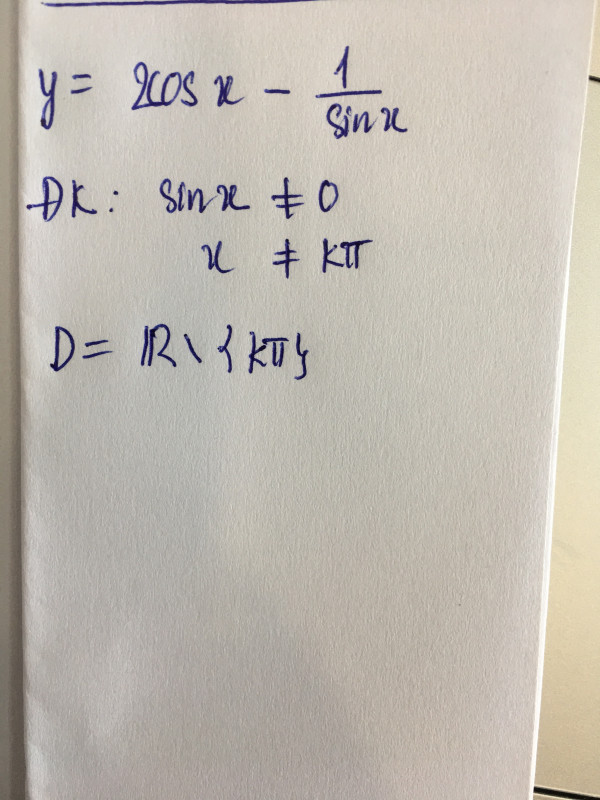 y = 2cos x - 1/sin x
ĐK: sin x ≠ 0
x ≠ kπ
D = ℝ \ {kπ}